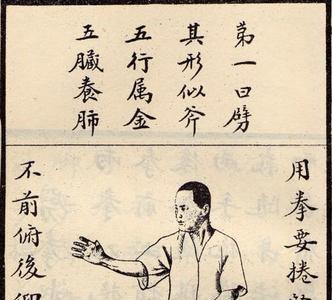 第一曰劈
其形似斧
五行属金
五臟養肺
用拳要捲
不前俯後仰